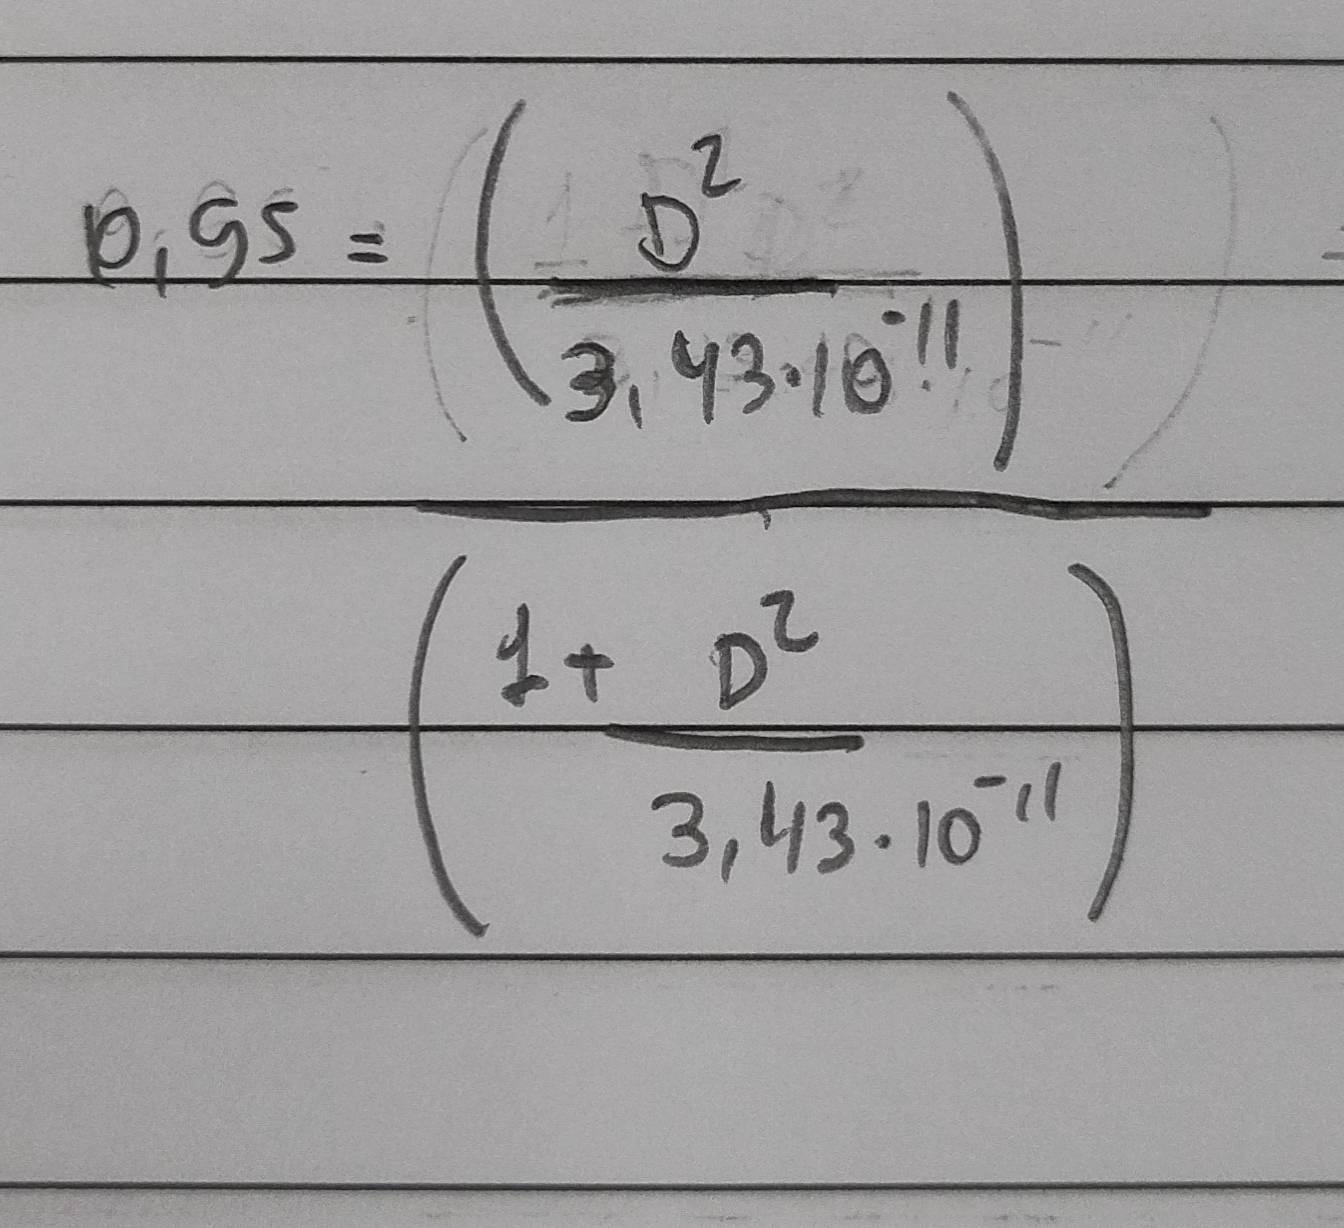 0,95 = (D² / 3,43·10⁻¹¹)
(1 + D² / 3,43·10⁻¹¹)